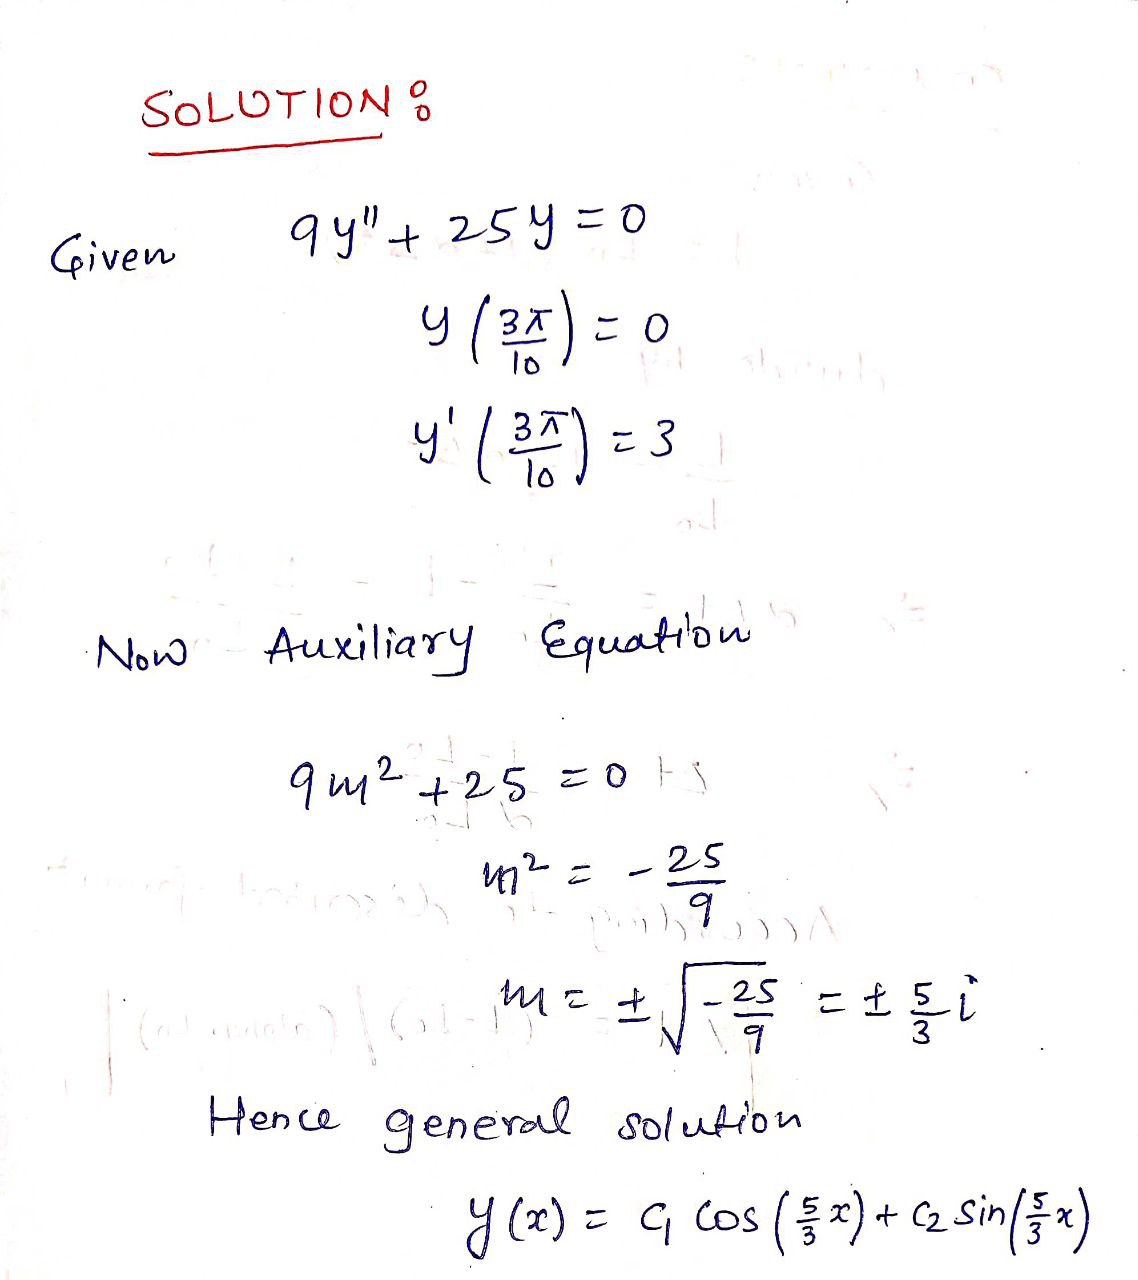 SOLUTION :
Given 9y" + 25y = 0
y (3π/10) = 0
y' (3π/10) = 3
Now Auxiliary Equation
9m² + 25 = 0
m² = - 25/9
m = ± √(-25/9) = ± 5/3 i
Hence general solution
y(x) = C₁ Cos (5/3 x) + C₂ Sin (5/3 x)